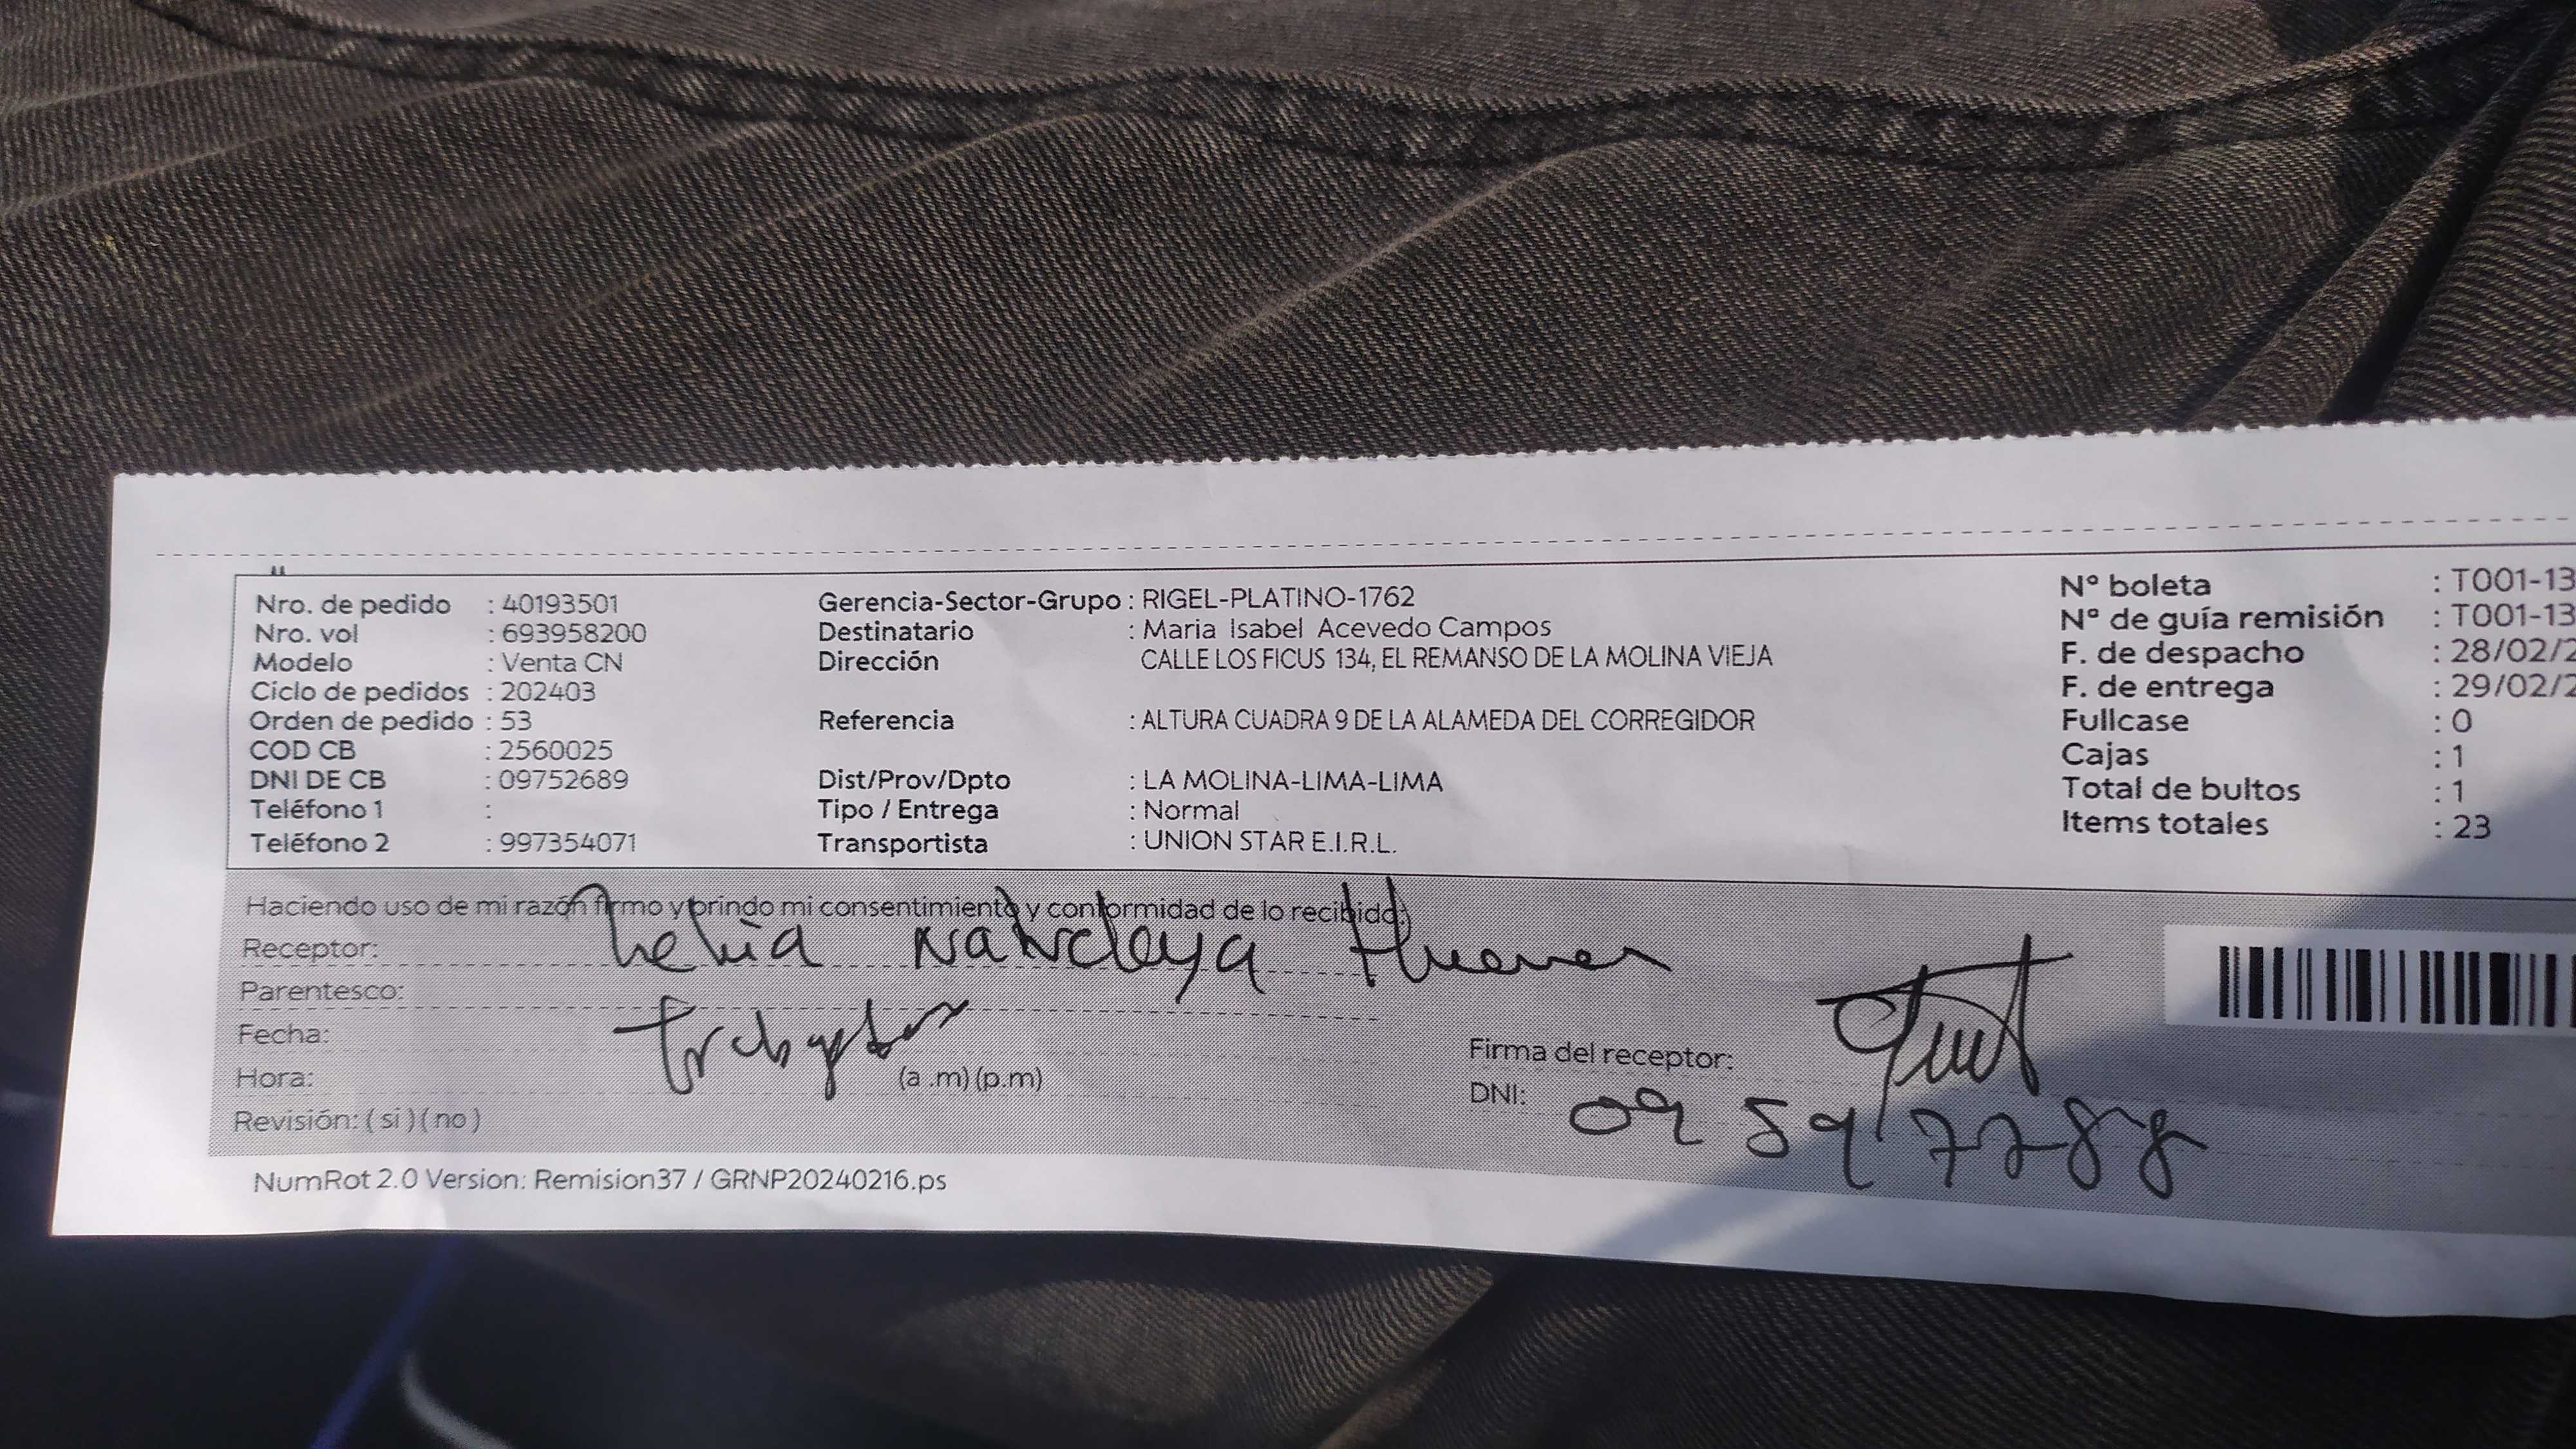 Nro. de pedido : 40193501
Nro. vol : 693958200
Modelo : Venta CN
Ciclo de pedidos : 202403
Orden de pedido : 53
COD CB : 2560025
DNI DE CB : 09752689
Teléfono 1 :
Teléfono 2 : 997354071
Gerencia-Sector-Grupo : RIGEL-PLATINO-1762
Destinatario : Maria Isabel Acevedo Campos
Dirección CALLE LOS FICUS 134, EL REMANSO DE LA MOLINA VIEJA
Referencia : ALTURA CUADRA 9 DE LA ALAMEDA DEL CORREGIDOR
Dist/Prov/Dpto : LA MOLINA-LIMA-LIMA
Tipo / Entrega : Normal
Transportista : UNION STAR E.I.R.L.
N° boleta : T001-13
N° de guía remisión : T001-13
F. de despacho : 28/02/2
F. de entrega : 29/02/2
Fullcase : 0
Cajas : 1
Total de bultos : 1
Items totales : 23
Haciendo uso de mi razón firmo y brindo mi consentimiento y conformidad de lo recibido.
Receptor:
Parentesco:
Fecha:
Hora: (a .m) (p.m)
Revisión: ( si ) ( no )
Firma del receptor:
DNI: 09597788
NumRot 2.0 Version: Remision37 / GRNP20240216.ps